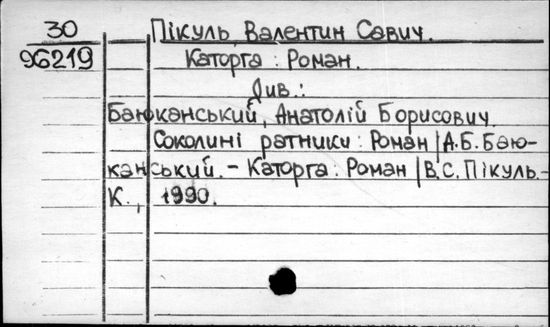 30 Пікуль, Валентин Савич.
96219 Каторга : Роман.
Див.:
Баюканський, Анатолій Борисович.
Соколині ратники : Роман | А.Б.Баю-
канський. - Каторга : Роман | В.С.Пікуль.-
К., 1990.